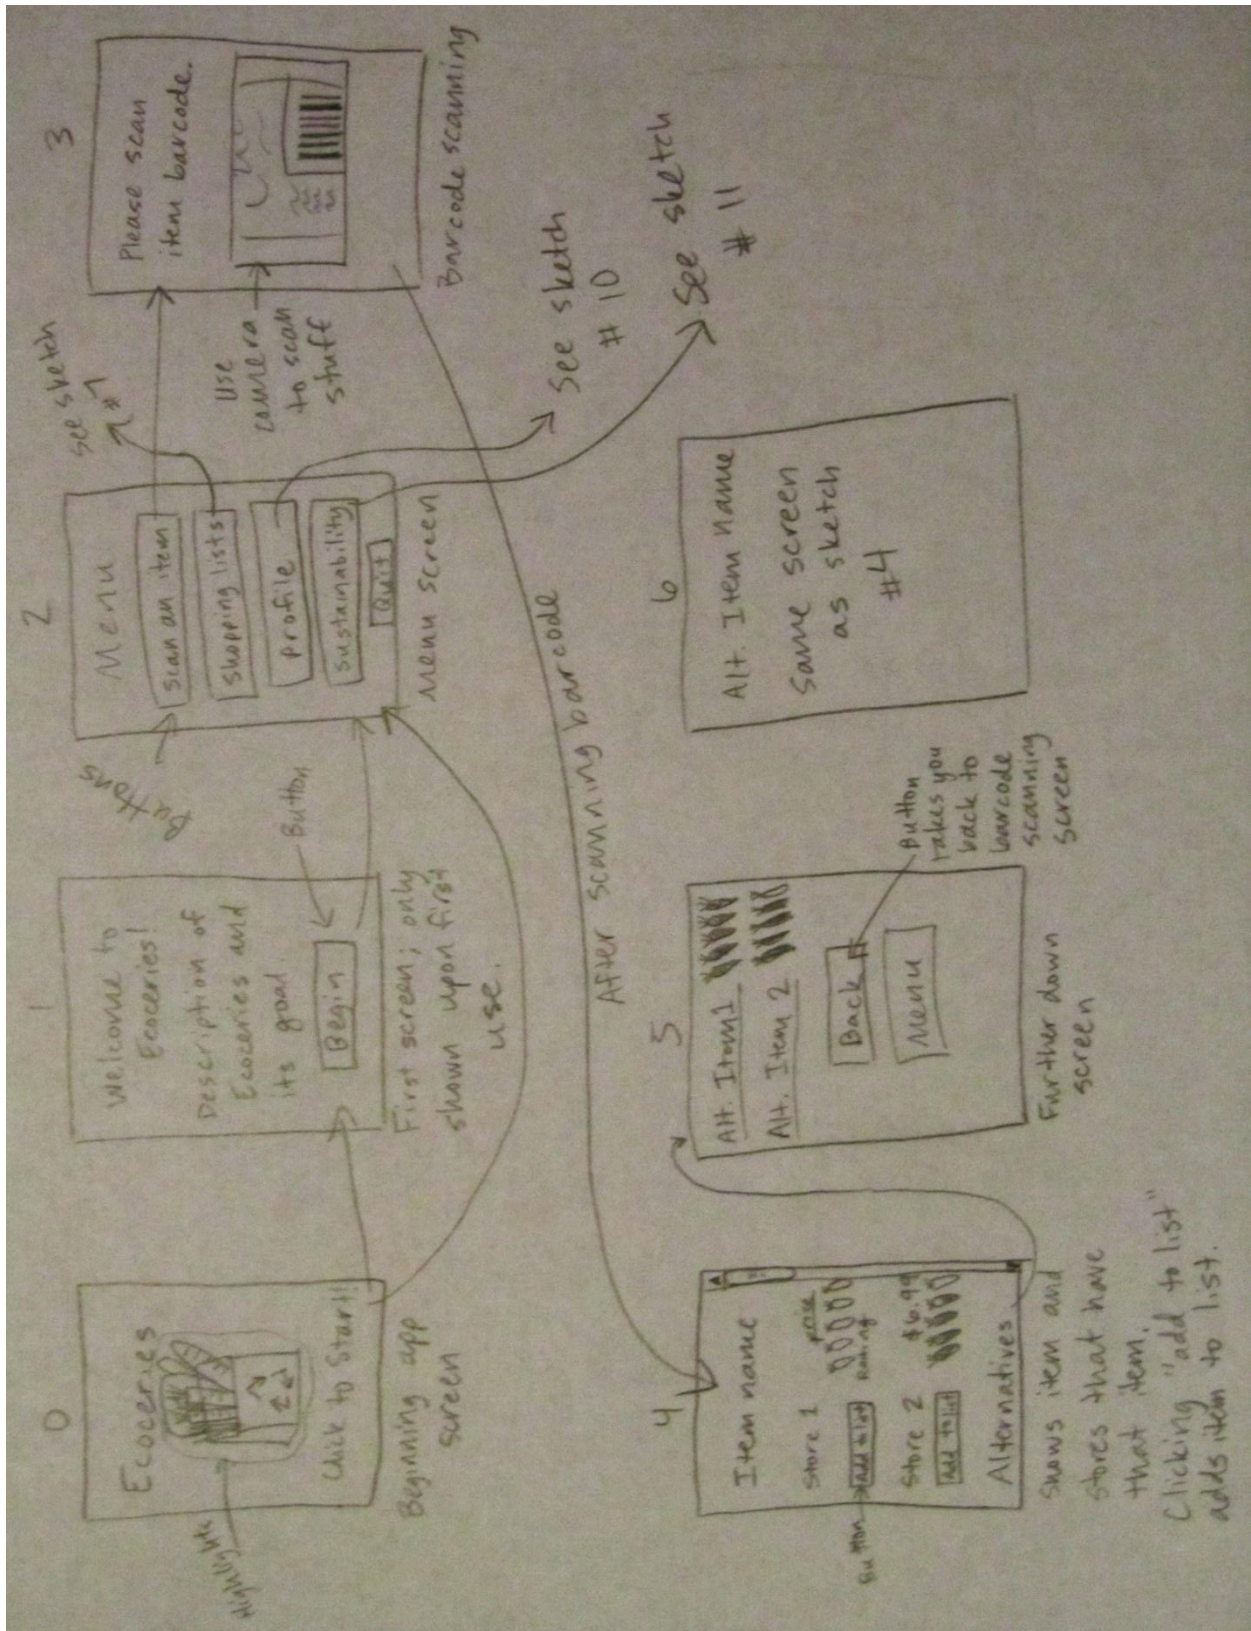 0
Ecoceries
Highlights
Click to Start!!
Beginning app
screen
1
Welcome to
Ecoceries!
Description of
Ecoceries and
its goal.
Begin
Button
First screen; only
shown upon first
use.
2
Menu
Buttons
Scan an item
Shopping lists
Profile
Sustainability
Quit
Menu screen
See sketch
#7
See sketch
# 10
See sketch
# 11
3
Please scan
item barcode.
Use
camera
to scan
stuff
Barcode scanning
After scanning barcode
4
Item name
Store 1 price
Button
Add to list
Rating
Store 2 $6.99
Add to list
Alternatives
Shows item and
stores that have
that item.
Clicking "add to list"
adds item to list.
5
Alt. Item 1
Alt. Item 2
Back
Menu
Button
takes you
back to
barcode
scanning
screen
Further down
screen
6
Alt. Item name
Same screen
as sketch
#4